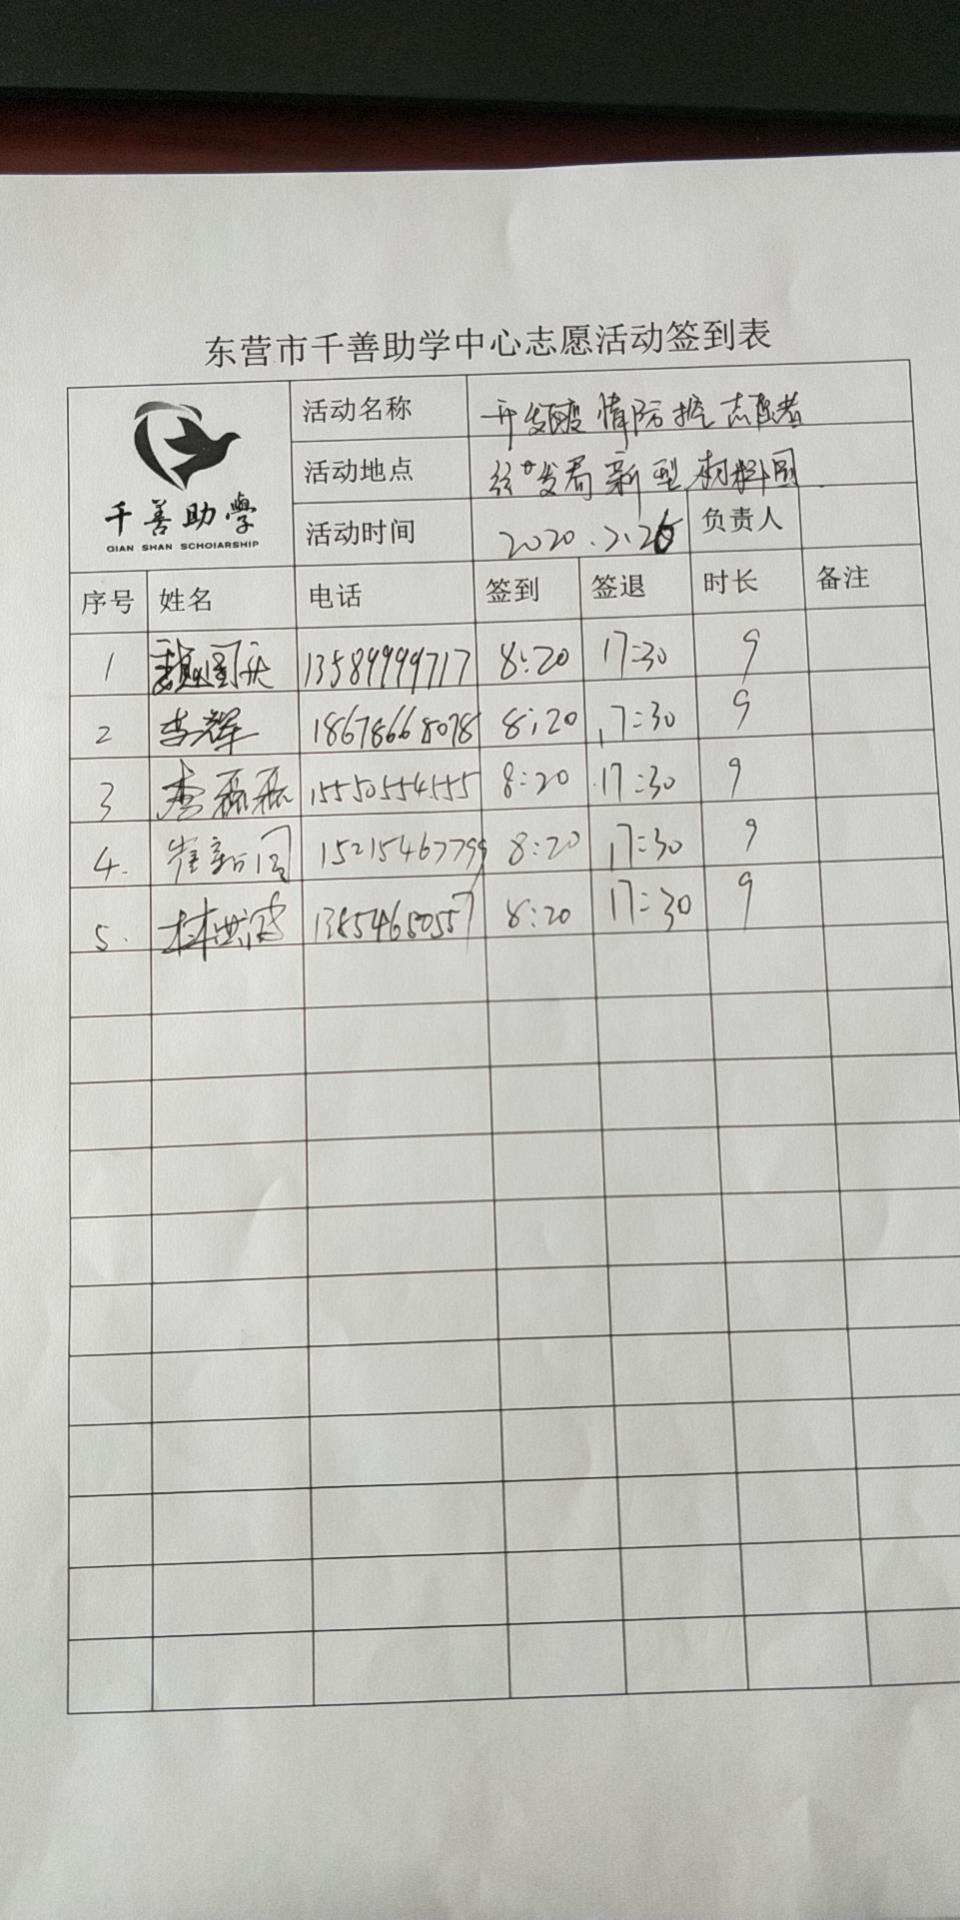 东营市千善助学中心志愿活动签到表
千善助學
QIAN SHAN SCHOLARSHIP
活动名称 开发区疫情防控志愿者
活动地点 发展新型材料园
活动时间 2020.2.26 负责人
序号 姓名 电话 签到 签退 时长 备注
1 魏国庆 13589999717 8:20 17:30 9
2 李辉 18678668078 8:20 17:30 9
3 李磊磊 15550554555 8:20 17:30 9
4. 崔新 15215467799 8:20 17:30 9
5. 林 13854680557 8:20 17:30 9